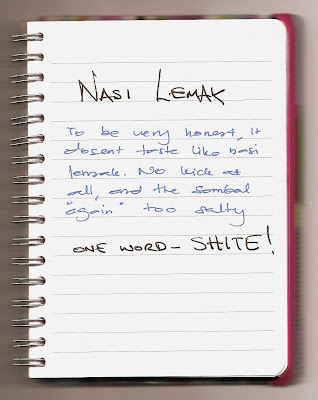 NASI LEMAK
To be very honest, it
dosent taste like nasi
lemak. No kick at
all, and the sambal
"again" too salty
ONE WORD - SHITE!